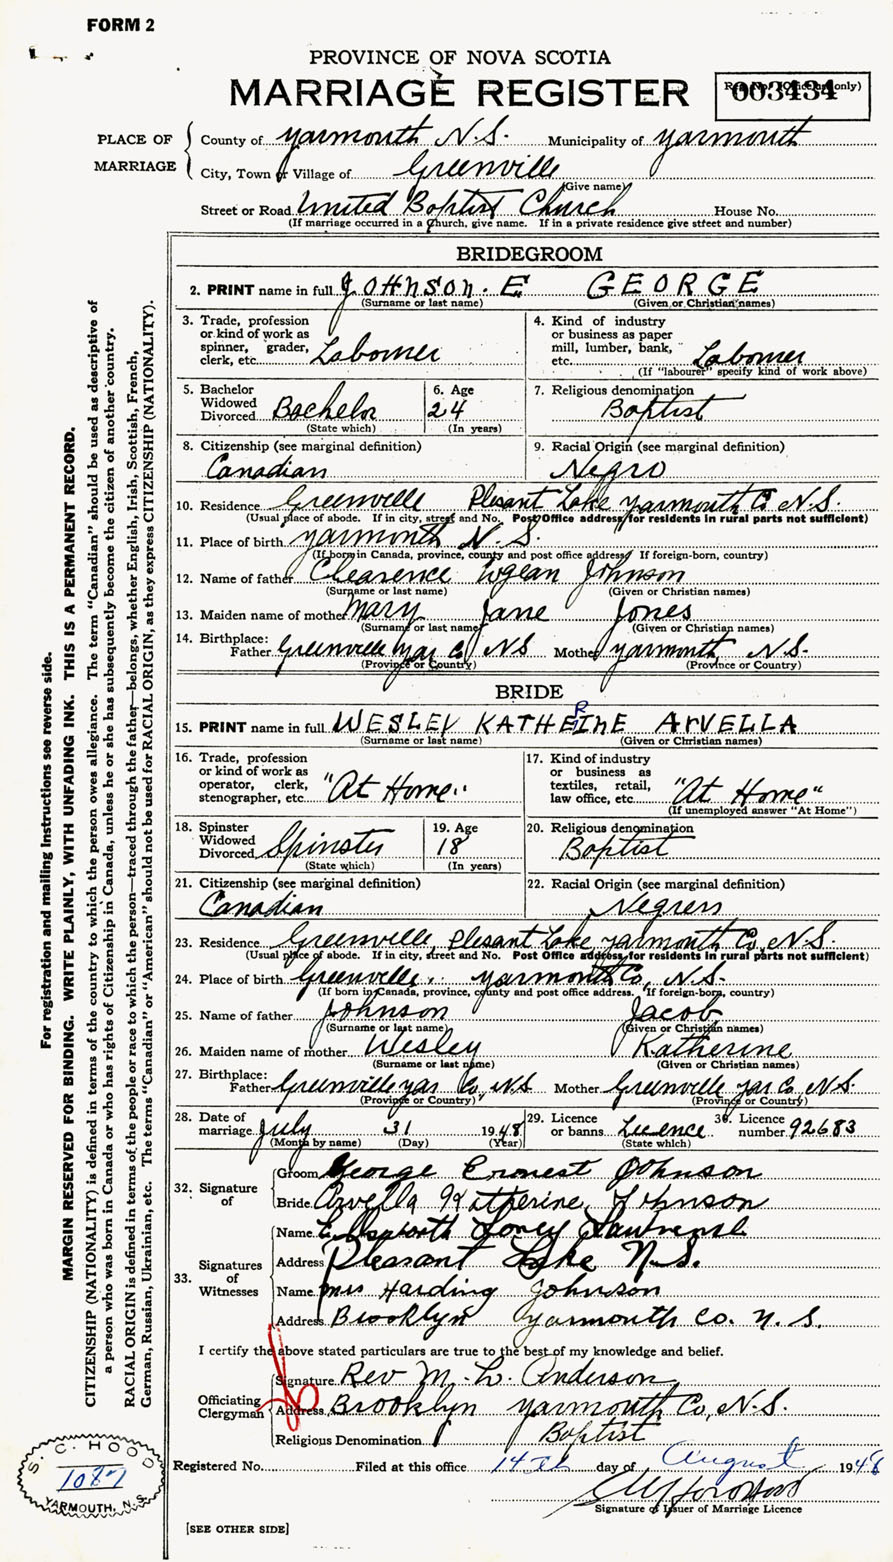 FORM 2
PROVINCE OF NOVA SCOTIA
MARRIAGE REGISTER
003434
PLACE OF MARRIAGE
County of Yarmouth N.S. Municipality of Yarmouth
City, Town or Village of Greenville
(Give name)
Street or Road United Baptist Church House No.
(If marriage occurred in a church, give name. If in a private residence give street and number)
BRIDEGROOM
2. PRINT name in full JOHNSON. E GEORGE
(Surname or last name) (Given or Christian names)
3. Trade, profession or kind of work as spinner, grader, clerk, etc. Labourer
4. Kind of industry or business as paper mill, lumber, bank, etc. Labourer
(If "labourer" specify kind of work above)
5. Bachelor Widowed Divorced Bachelor
(State which)
6. Age 24
(In years)
7. Religious denomination Baptist
8. Citizenship (see marginal definition) Canadian
9. Racial Origin (see marginal definition) Negro
10. Residence Greenville Plesant Lake Yarmouth Co N.S.
(Usual place of abode. If in city, street and No. Post Office address for residents in rural parts not sufficient)
11. Place of birth Yarmouth N.S.
(If born in Canada, province, county and post office address. If foreign-born, country)
12. Name of father Clearence Logean Johnson
(Surname or last name) (Given or Christian names)
13. Maiden name of mother Mary Jane Jones
(Surname or last name) (Given or Christian names)
14. Birthplace: Father Greenville Yar Co, NS Mother Yarmouth N.S.
(Province or Country) (Province or Country)
BRIDE
15. PRINT name in full WESLEY KATHERINE ARVELLA
(Surname or last name) (Given or Christian names)
16. Trade, profession or kind of work as operator, clerk, stenographer, etc. "At Home"
17. Kind of industry or business as textiles, retail, law office, etc. "At Home"
(If unemployed answer "At Home")
18. Spinster Widowed Divorced Spinster
(State which)
19. Age 18
(In years)
20. Religious denomination Baptist
21. Citizenship (see marginal definition) Canadian
22. Racial Origin (see marginal definition) Negress
23. Residence Greenville, Plesant Lake Yarmouth Co, N.S.
(Usual place of abode. If in city, street and No. Post Office address for residents in rural parts not sufficient)
24. Place of birth Greenville, Yarmouth Co, N.S.
(If born in Canada, province, county and post office address. If foreign-born, country)
25. Name of father Johnson Jacob
(Surname or last name) (Given or Christian names)
26. Maiden name of mother Wesley Katherine
(Surname or last name) (Given or Christian names)
27. Birthplace: Father Greenville Yar Co, N.S Mother Greenville Yar Co, N.S.
(Province or Country) (Province or Country)
28. Date of marriage July 31 1948
(Month by name) (Day) (Year)
29. Licence or banns Licence
(State which)
30. Licence number 92683
32. Signature of
Groom George Ernest Johnson
Bride Arvella Katherine Johnson
33. Signatures of Witnesses
Name Ellsworth Loney Lawrence
Address Pleasant Lake N.S.
Name Mrs Harding Johnson
Address Brooklyn Yarmouth Co. N.S.
I certify the above stated particulars are true to the best of my knowledge and belief.
Officiating Clergyman
Signature Rev M. L. Anderson
Address Brooklyn Yarmouth Co, N.S.
Religious Denomination Baptist
Registered No. Filed at this office 14th day of August 1948
Signature of Issuer of Marriage Licence
[SEE OTHER SIDE]
For registration and mailing instructions see reverse side.
MARGIN RESERVED FOR BINDING. WRITE PLAINLY, WITH UNFADING INK. THIS IS A PERMANENT RECORD.
CITIZENSHIP (NATIONALITY) is defined in terms of the country to which the person owes allegiance. The term "Canadian" should be used as descriptive of
a person who was born in Canada or who has rights of Citizenship in Canada, unless he or she has subsequently become the citizen of another country.
RACIAL ORIGIN is defined in terms of the people or race to which the person—traced through the father—belongs, whether English, Irish, Scottish, French,
German, Russian, Ukrainian, etc. The terms "Canadian" or "American" should not be used for RACIAL ORIGIN, as they express CITIZENSHIP (NATIONALITY).
S. C. HOOD
1087
YARMOUTH, N.S.